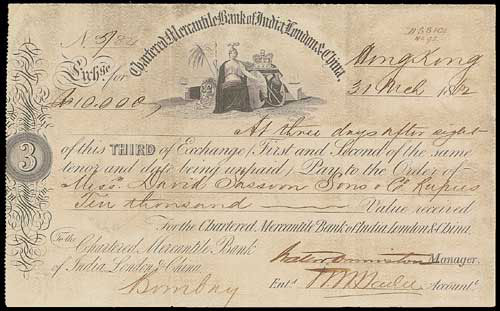 Chartered Mercantile Bank of India, London & China
Exchge for
10.000
Hong Kong
31 Mch
At three days after sight
of this THIRD of Exchange (First and Second of the same
tenor and date being unpaid) Pay to the Order of
Messrs. David Sassoon Sons & Co Rupees
Ten thousand Value received
3
For the Chartered Mercantile Bank of India, London & China.
To the
Chartered Mercantile Bank
of India, London & China.
Bombay
Manager.
Entd. Accountt.